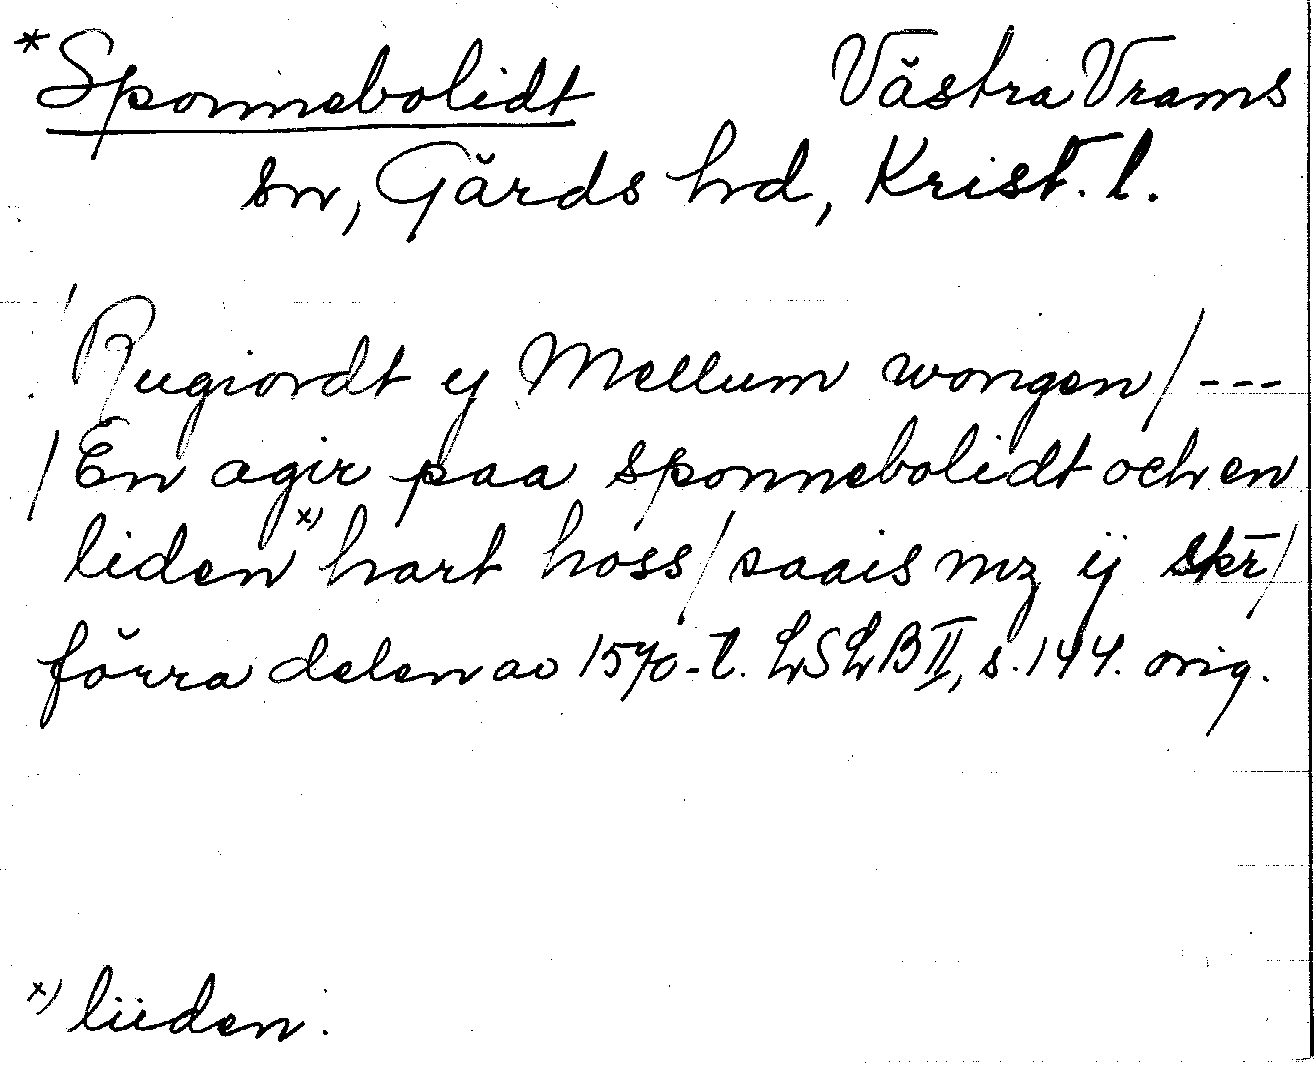 *Sponnebolidt Västra Vrams
sn, Gärds hd, Krist. l.
/Rugiordt ij Mellum wongen/---
/En agir paa sponnebolidt och en
liden x) hart hoss/saais mz ij skr/
förra delen av 1570-t. LSLB II, s. 144. orig.
x) liiden.